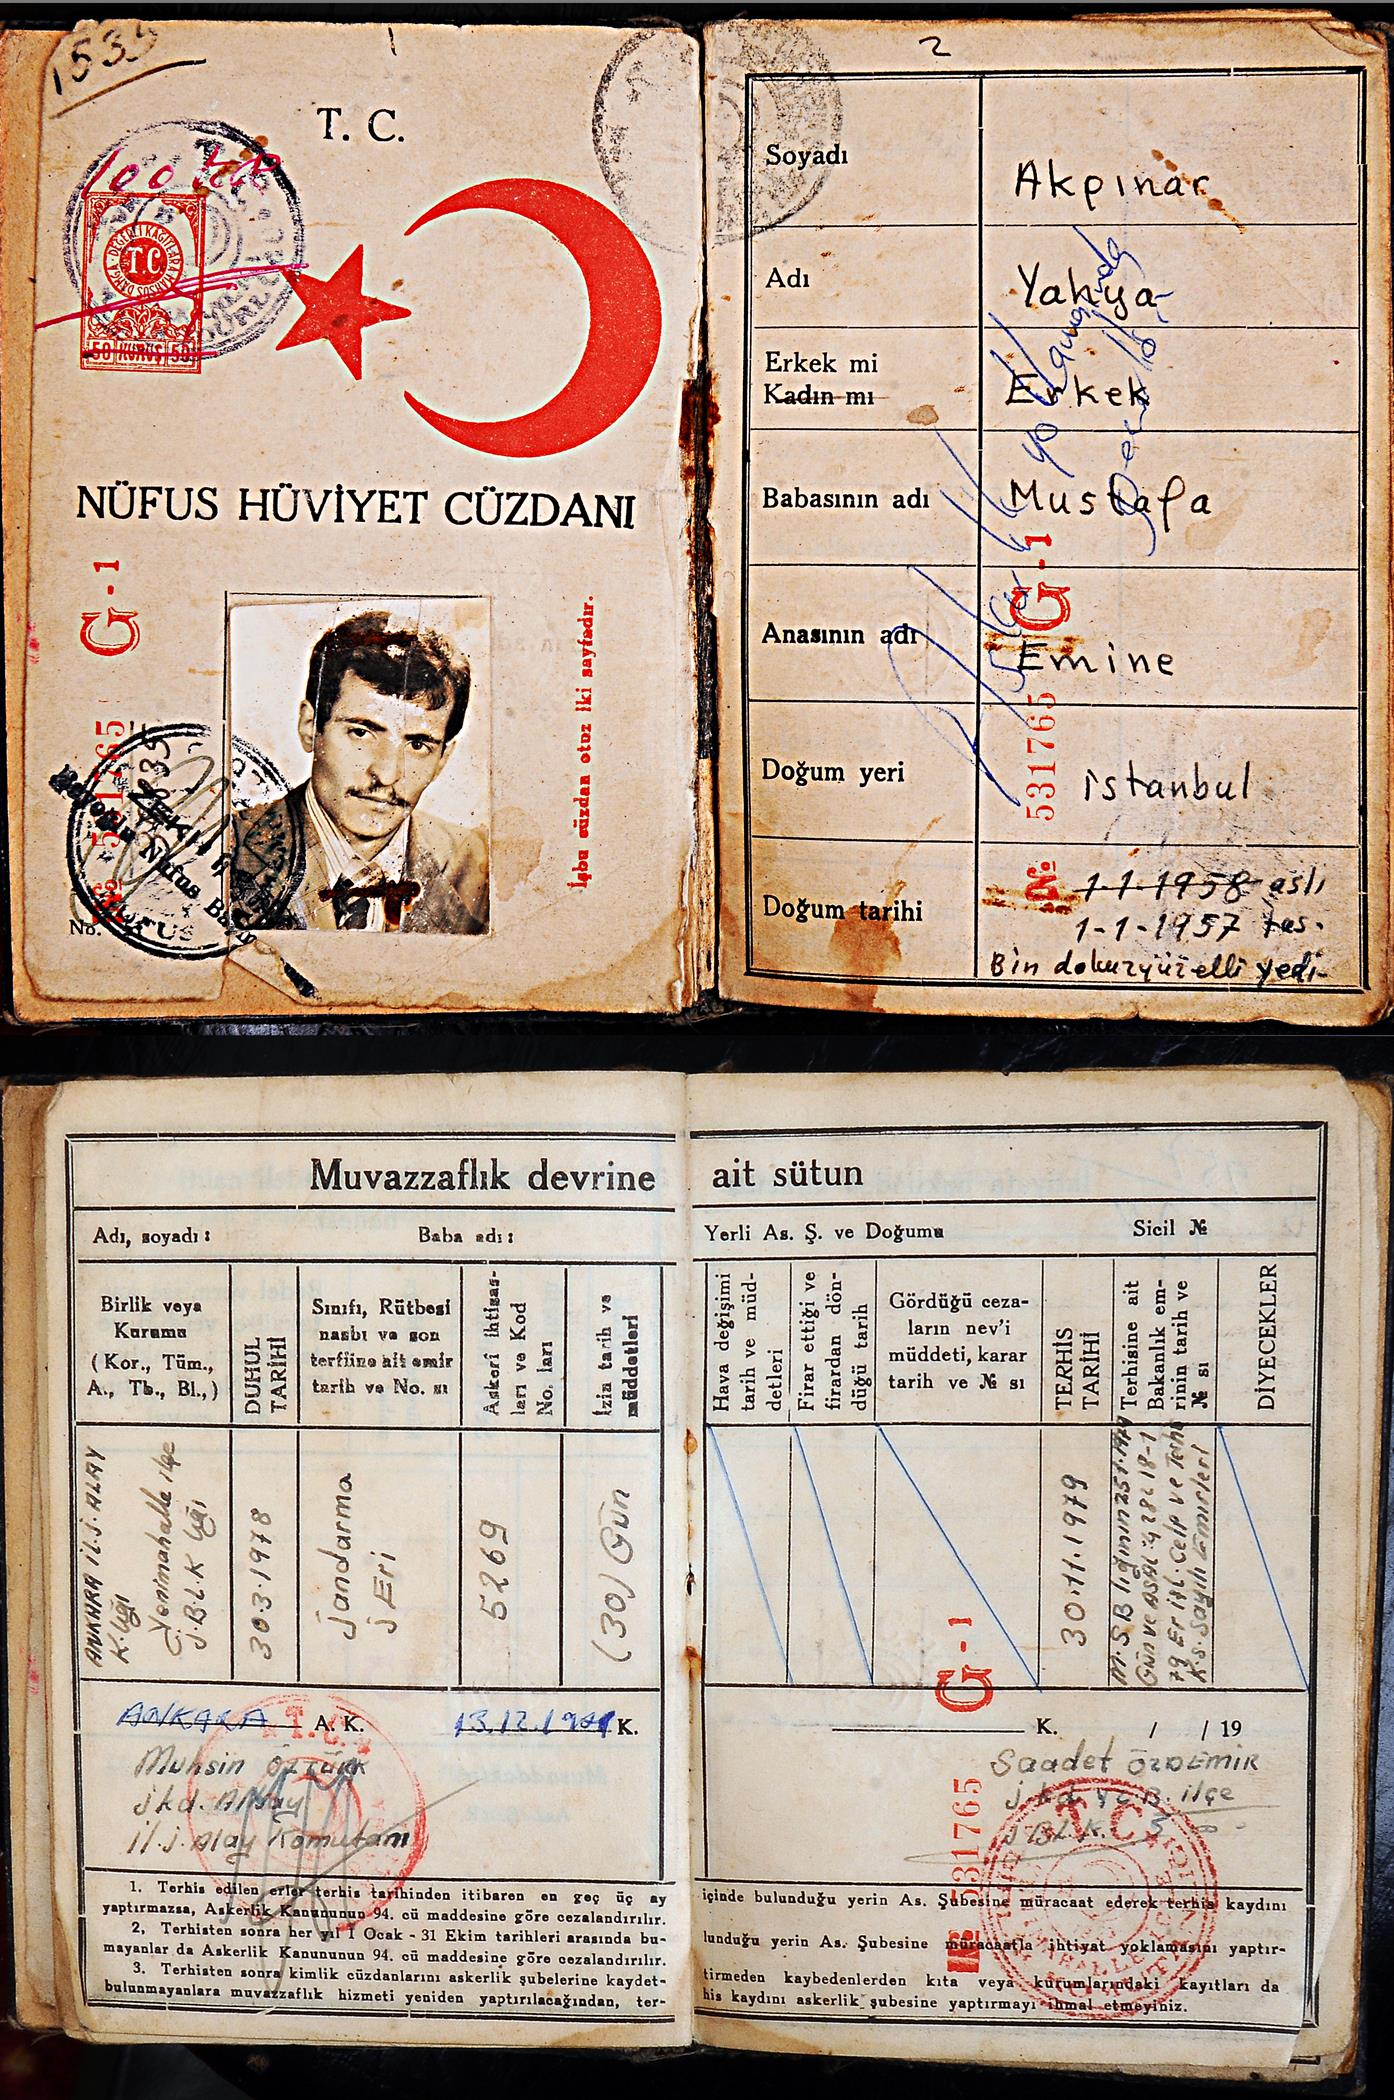 1535
1
T. C.
100 krş
DEĞERLİ KAĞITLARA MAHSUS DAMGA
T.C
50 KURUŞ 50
NÜFUS HÜVİYET CÜZDANI
G-1
№ 531765
İşbu cüzdan otuz iki sayfadır.
Beyoğlu Nüfus
NÜFUS
No.
2
Soyadı Akpınar
Adı Yahya
Erkek mi
Kadın mı Erkek
Babasının adı Mustafa
Anasının adı Emine
Doğum yeri istanbul
Doğum tarihi 1-1-1958 aslı
1-1-1957 tas.
Bin dokuzyüz elli yedi-
G-1
№ 531765
Muvazzaflık devrine ait sütun
Adı, soyadı: Baba adı: Yerli As. Ş. ve Doğumu Sicil №
Birlik veya
Kurumu
(Kor., Tüm.,
A., Tb., Bl.,)
DUHUL
TARİHİ
Sınıfı, Rütbesi
nasbı ve son
terfiine ait emir
tarih ve No. sı
Askerî ihtisas-
ları ve Kod
No. ları
İzin tarih ve
müddetleri
Hava değişimi
tarih ve müd-
detleri
Firar ettiği ve
firardan dön-
düğü tarih
Gördüğü ceza-
ların nev'i
müddeti, karar
tarih ve № sı
TERHİS
TARİHİ
Terhisine ait
Bakanlık em-
rinin tarih ve
№ sı
DİYECEKLER
ANKARA İL.J.ALAY
K.lığı
Yenimahalle ilçe
J.BL.K lığı
30.3.1978
Jandarma
J Eri
5269
(30) Gün
30.11.1979
M.S B lığının 25.1.1979
Gün ve ASAL
79 Er ist. Celp ve Terhis
K.S. Sayılı Emirleri
ANKARA A. K. 13.12.19 K.
Muhsin ÖZTÜRK
J.kd. Albay
il.J.Alay Komutanı
T.C.
K. / / 19
Saadet ÖZDEMİR
J.kd. ilçe
J BL.K.
T.C.
G-1
№ 531765
1. Terhis edilen erler terhis tarihinden itibaren en geç üç ay içinde bulunduğu yerin As. Şubesine müracaat ederek terhis kaydını
yaptırmazsa, Askerlik Kanununun 94. cü maddesine göre cezalandırılır.
2, Terhisten sonra her yıl 1 Ocak - 31 Ekim tarihleri arasında bu- lunduğu yerin As. Şubesine müracaatla ihtiyat yoklamasını yaptır-
mayanlar da Askerlik Kanununun 94. cü maddesine göre cezalandırılır.
3. Terhisten sonra kimlik cüzdanlarını askerlik şubelerine kaydet- tirmeden kaybedenlerden kıta veya kurumlarındaki kayıtları da
bulunmayanlara muvazzaflık hizmeti yeniden yaptırılacağından, ter- his kaydını askerlik şubesine yaptırmayı ihmal etmeyiniz.